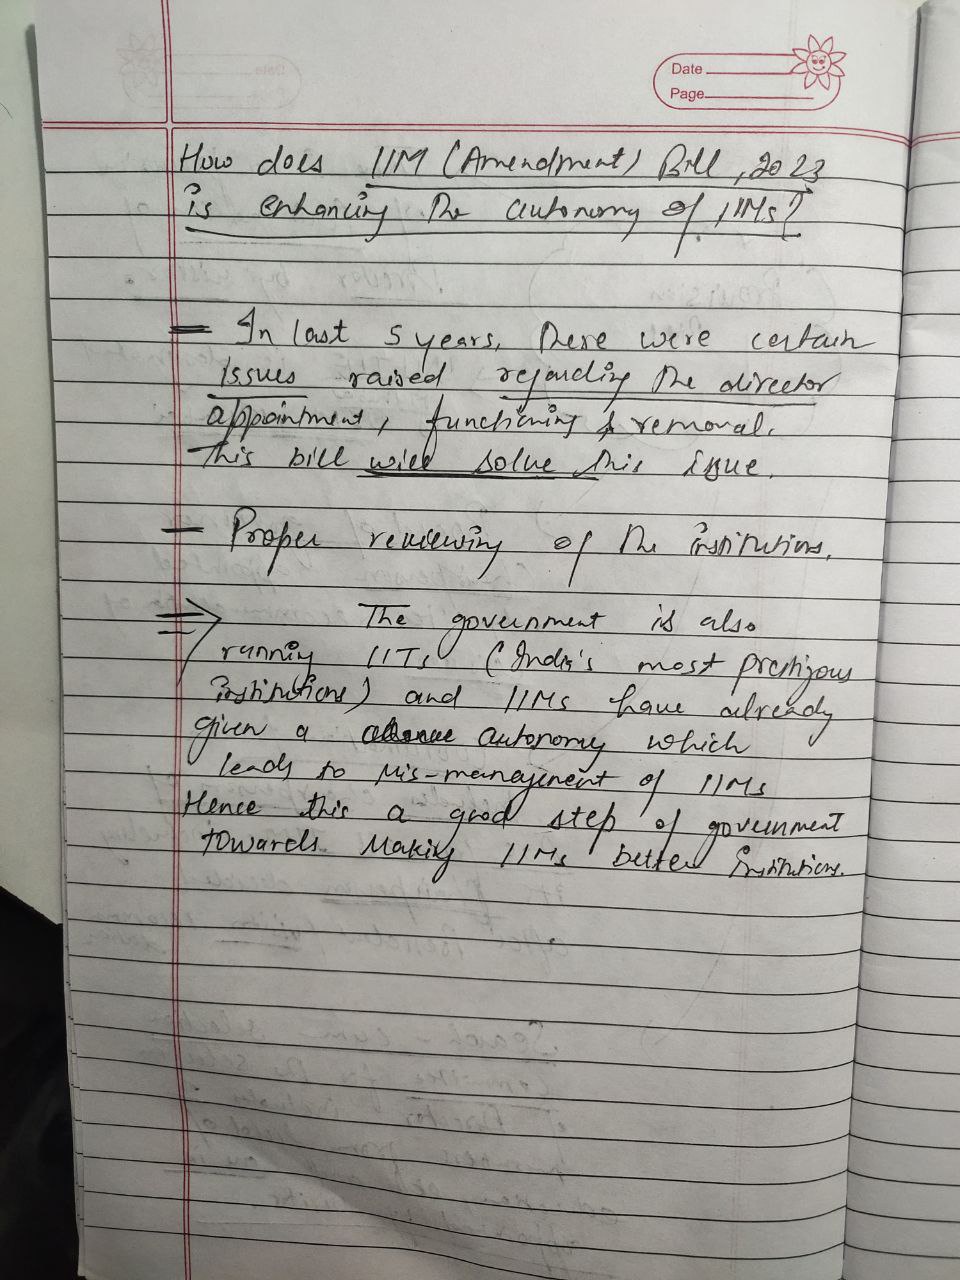 Date
Page
How does IIM (Amendment) Bill, 2023
is enhancing the autonomy of IIMs?
– In last 5 years, there were certain
issues raised regarding the director
appointment, functioning & removal.
This bill will solve this issue.
– Proper reviewing of the institutions.
⇒ The government is also
running IITs (India's most prestigous
institutions) and IIMs have already
given a autonomy which
leads to Mis-management of IIMs
Hence this a good step of government
towards Making IIMs better institutions.